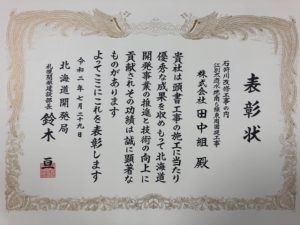 表彰状
石狩川改修工事の内
株式会社 田中組 殿
貴社は頭書工事の施工に当たり
優秀な成果を収めもって北海道
開発事業の推進と技術の向上に
貢献されその功績は誠に顕著な
ものがあります
よってここにこれを表彰します
令和二年七月三十九日
北海道開発局
札幌開発建設部長
鈴木 亘